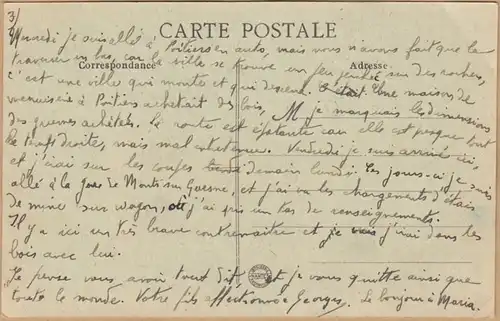 3/
CARTE POSTALE
Correspondance
Adresse
Mercredi je suis allé à Poitiers en auto, mais nous n'avons fait que la
traverser car la ville se trouve un peu perchée sur des rochers,
c'est une ville qui monte et qui descend. C'était Une maison de
menuiserie à Poitiers achetait des bois, M je marquais les dimensions
des grumes achetés. La route est épatante car elle est presque tout
le temps droite, mais mal entretenue. Vendredi je suis arrivé ici,
et j'irai sur les coupes demain lundi. Ces jours-ci je suis
allé à la gare de Monts sur Guesne, et j'ai vu les chargements d'étais
de mine sur wagon, où j'ai pris un tas de renseignements.
Il y a ici un très brave contremaître et je vais j'irai dans les
bois avec lui.
Je pense vous avoir tout dit et je vous quitte ainsi que
toute le monde. Votre fils affectionné Georges. Le bonjour à Maria.